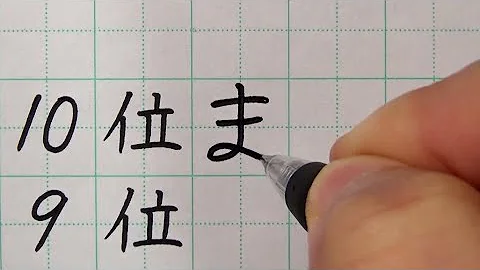 10位ま
9位